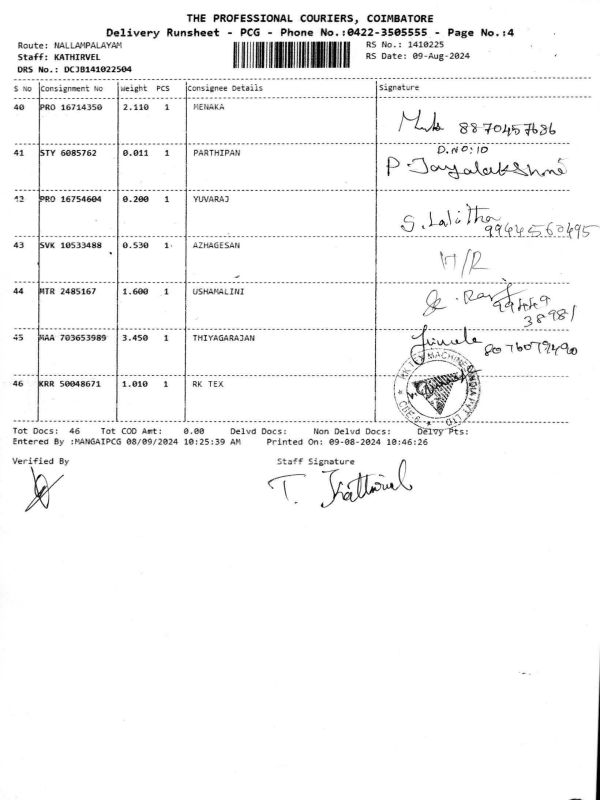 THE PROFESSIONAL COURIERS, COIMBATORE
Delivery Runsheet - PCG - Phone No.:0422-3505555 - Page No.:4
Route: NALLAMPALAYAM RS No.: 1410225
Staff: KATHIRVEL RS Date: 09-Aug-2024
DRS No.: DCJB141022504
S No Consignment No Weight PCS Consignee Details Signature
40 PRO 16714350 2.110 1 MENAKA
8870457686
41 STY 6085762 0.011 1 PARTHIPAN D.NO:10
P. Jayalakshmi
42 PRO 16754604 0.200 1 YUVARAJ
S. Lalitha
9944560495
43 SVK 10533488 0.530 1 AZHAGESAN
H/R
44 MTR 2485167 1.600 1 USHAMALINI
99449
38981
45 MAA 703653989 3.450 1 THIYAGARAJAN
8076079490
RK TEX MACHINES INDIA PVT LTD
46 KRR 50048671 1.010 1 RK TEX
Tot Docs: 46 Tot COD Amt: 0.00 Delvd Docs: Non Delvd Docs: Delvy Pts:
Entered By :MANGAIPCG 08/09/2024 10:25:39 AM Printed On: 09-08-2024 10:46:26
Verified By Staff Signature
T. Kathirvel